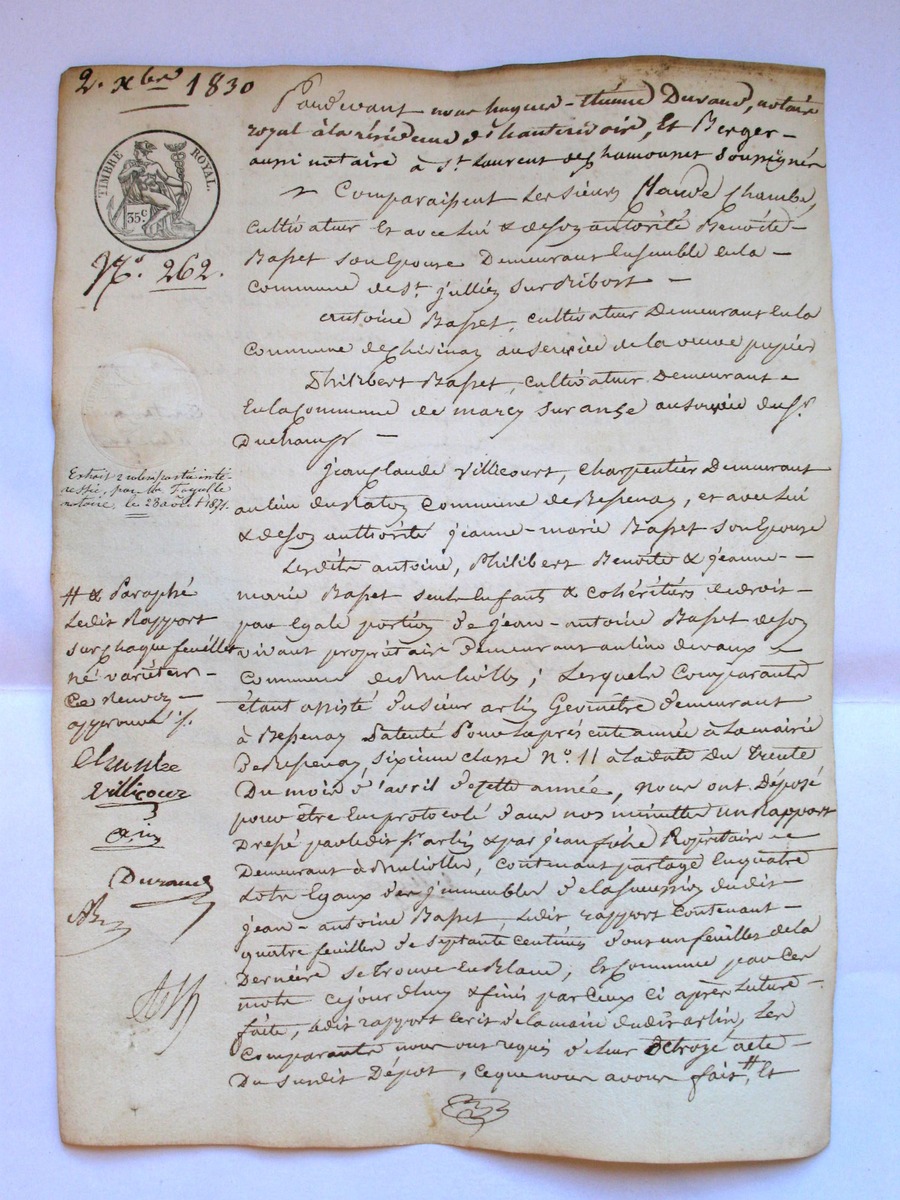 2. Xbre 1830
TIMBRE ROYAL.
35c.
N°. 262.
Pardevant nous hugues-Etienne Durand, notaire
royal à la résidence d'hauterivoire, Et Berger
aussi notaire à St. Laurent de Chamousset Soussignés
Comparaissent Les sieurs Claude Chambe,
Cultivateur Et avec lui & de son autorité Benoite
Basset son Epouse Demeurant Ensemble En la
Commune de St. jullien sur Bibost
antoine Basset, cultivateur Demeurant En la
Commune de Chevinay au service de la veuve
Philibert Basset, cultivateur Demeurant
En la Commune de marcy sur anse au service du Sr.
Duchamp
jean Claude Villicourt, Charpentier Demeurant
au lieu du Ratoy Commune de Bessenay, et avec lui
& de son authorité jeanne-marie Basset son Epouse
Lesdits antoine, Philibert Benoite & jeanne
marie Basset seuls Enfants & cohéritiers de droit
par Egale portion de jean-antoine Basset de son
vivant propriétaire Demeurant au lieu de vaux
Commune de Brulliolles; Lesquels Comparants
étant assisté du sieur arlin Géomètre demeurant
à Bessenay Patenté Pour la présente année à la mairie
de Bessenay sixieme classe N° 11 à la date Du trente
Du mois d'avril de cette année, Nous ont Déposé
pour être Emprotocolé dans nos minuttes un Rapport
Dressé par ledit Sr. arlin & par jean Propriétaire
Demeurant à Brulliolles, contenant partage En quatre
Lots Egaux des jmmeubles de la sucession dudit
jean-antoine Basset, Ledit rapport contenant
quatre feuilles de septante centimes dont un feuillet de la
Dernière se trouve En Blanc, Et Commence par Ces
mots cejourdhuy & finis par Ceux Ci après Lecture
faite, ledit rapport écrit de la main dudit arlin, Les
comparants nous ont requis de leur Octroyé acte
Du susdit Dépot, ce que nous avons fait #, Et
Extrait
notaire, le 28 août
# & Paraphé
Ledit Rapport
sur chaque feuillet
né varietur
Ce renvoi
approuvé
Chambe
Villicour
Durand